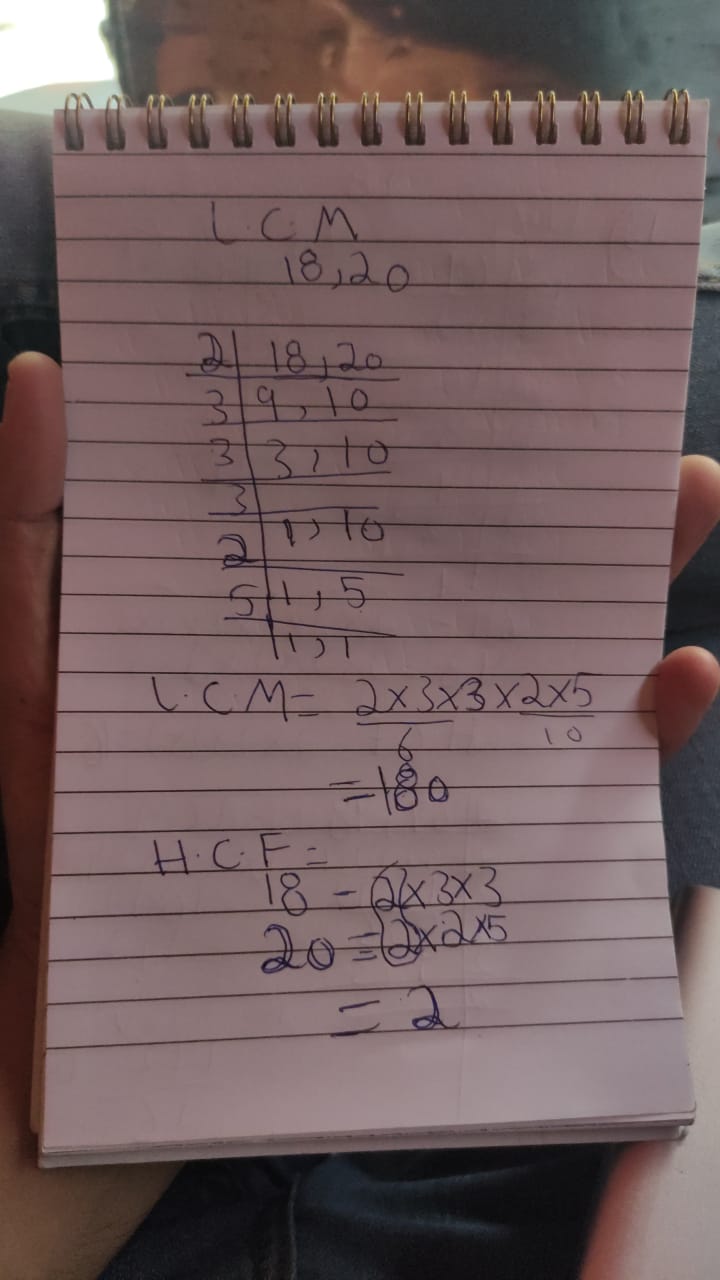 L.C.M
18,20
2 | 18,20
3 | 9,10
3 | 3,10
3 |
2 | 1,10
5 | 1,5
| 1,1
L.C.M= 2×3×3×2×5
6 10
=180
H.C.F=
18 - 2×3×3
20 = 2×2×5
= 2